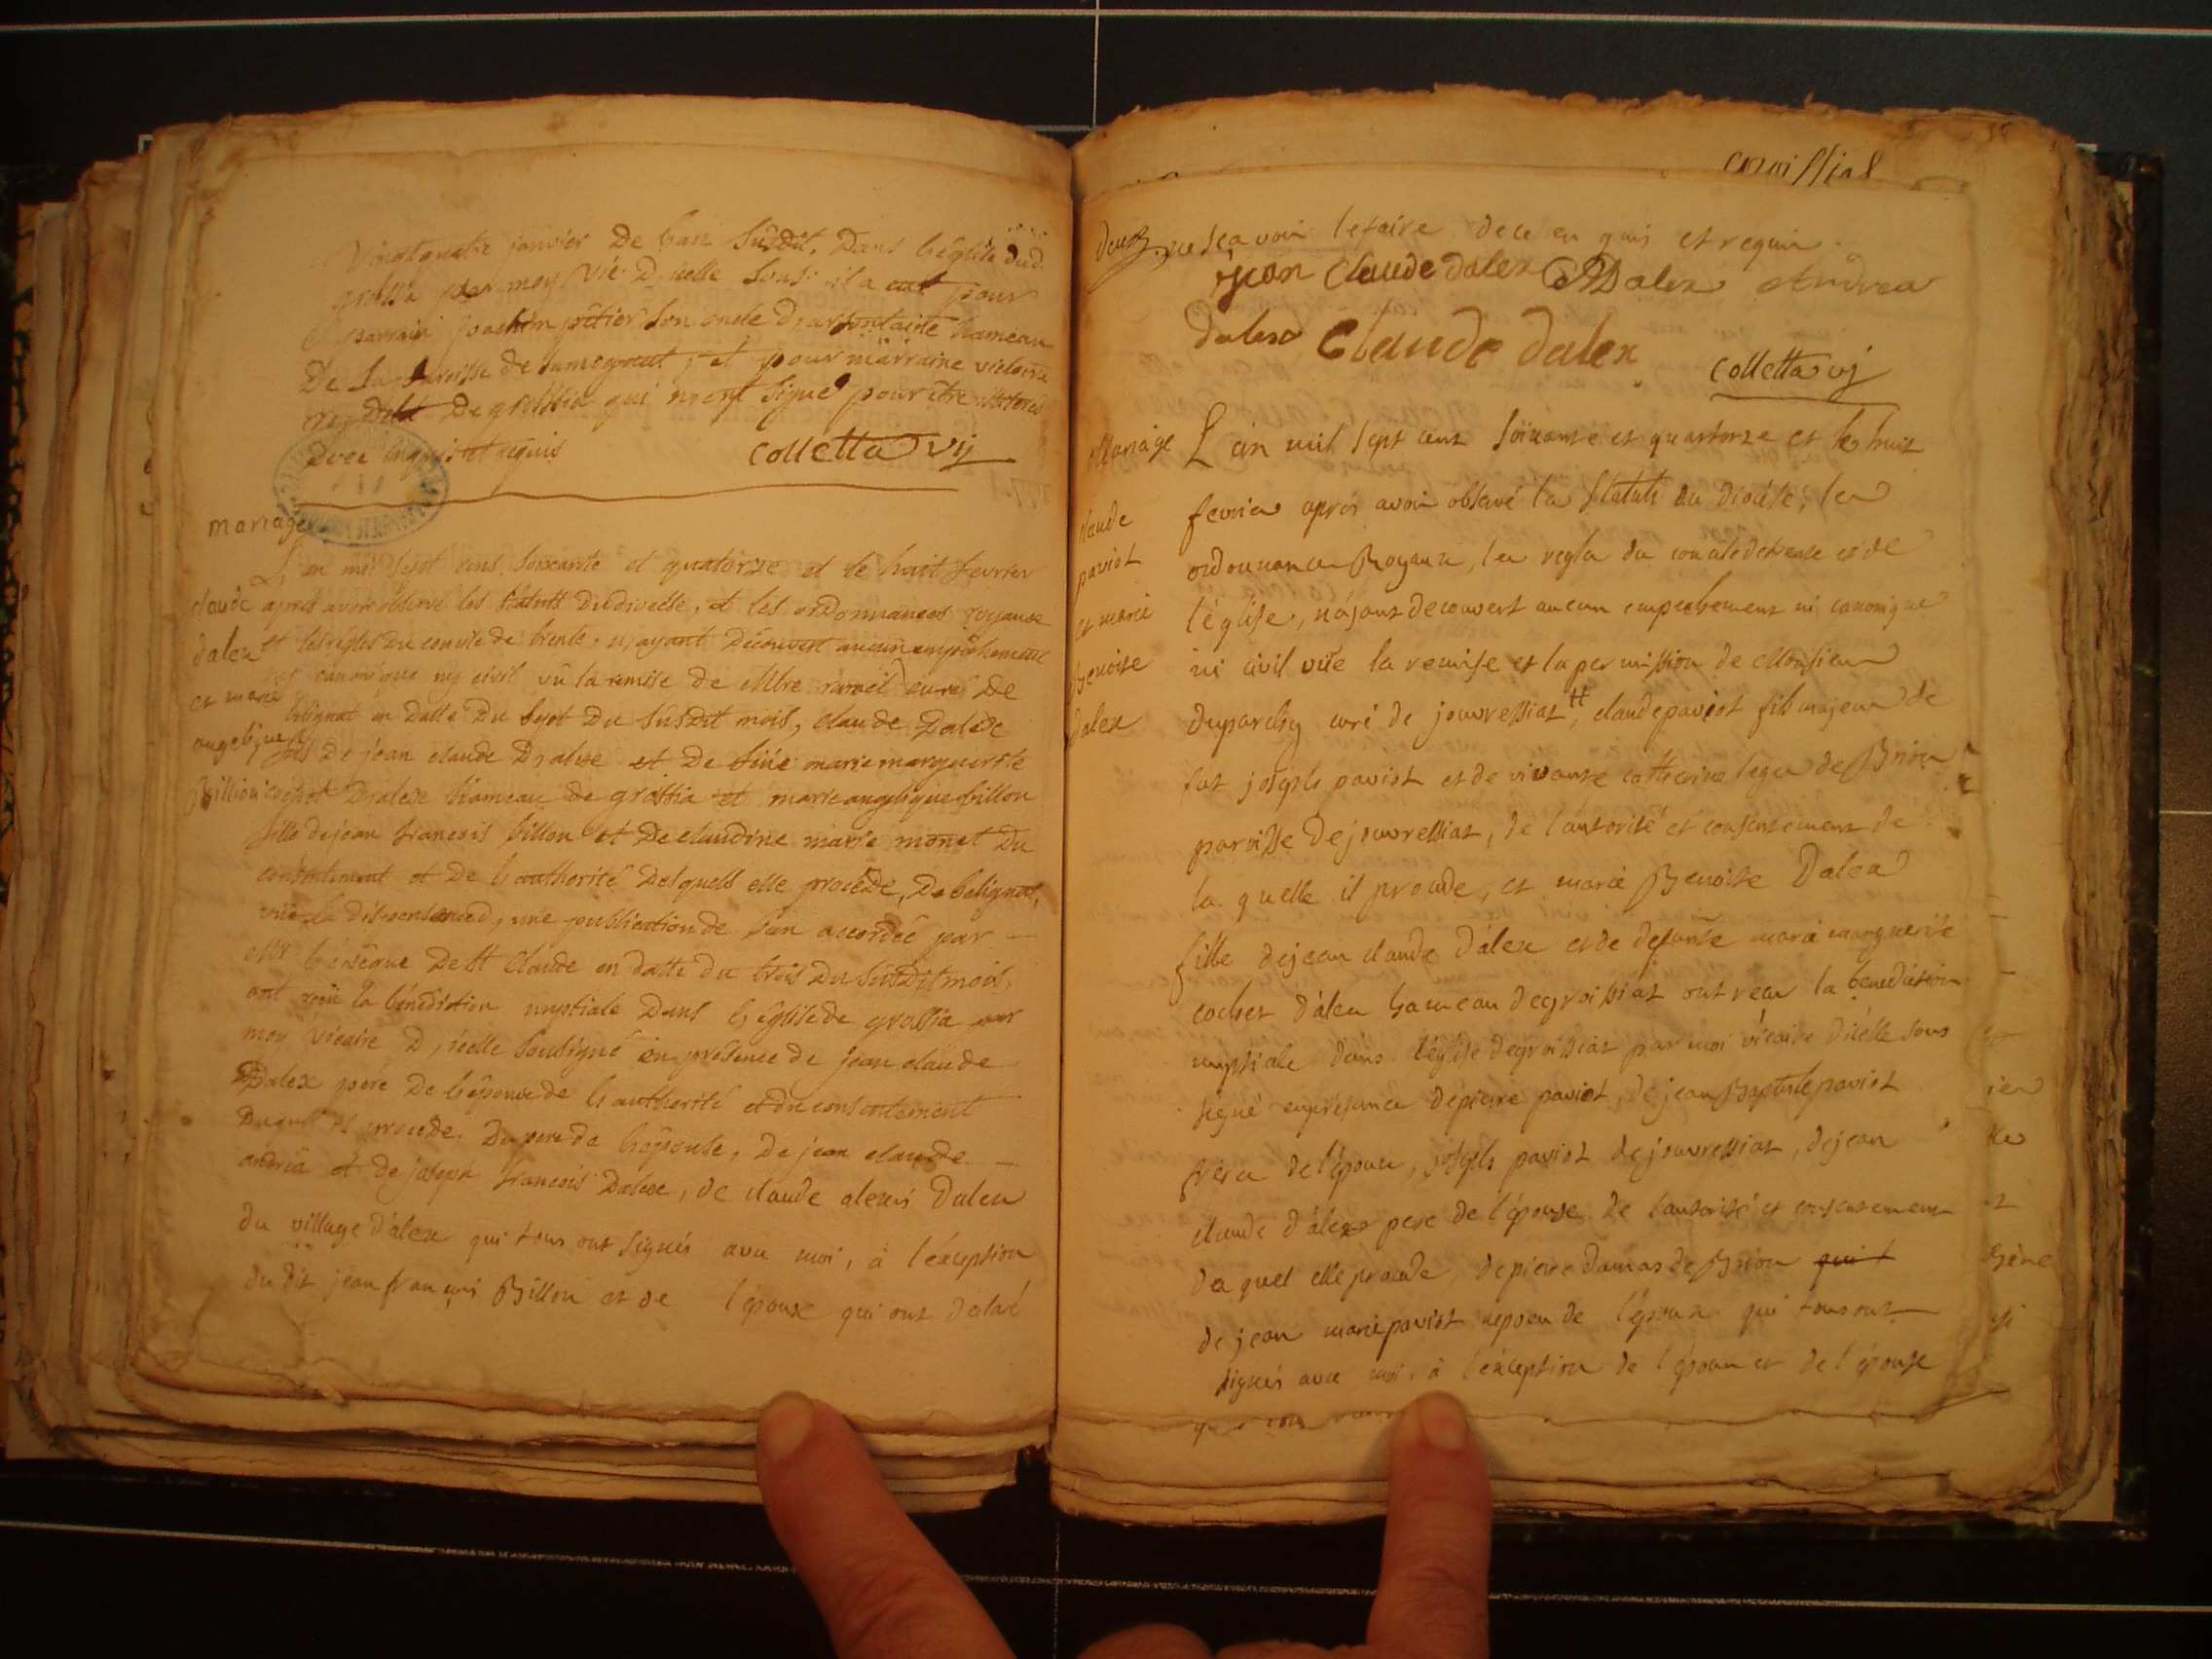 Vingt quatre janvier De l'an susdit, Dans l'église dud.
grossia par moy vic D'icelle sous. il a eut pour
parrain joachim son oncle D'arfontaine hameau
De la paroisse de samognat, et pour marraine victoire
De grossia qui n'ont signé pour être illiterés
Dece enquis et requis
colletta vij
mariage
L'an mil sept cens soixante et quatorze et le huit fevrier
après avoir observé les statuts Dudiocèse, et les ordonnances royaux
et les règles Du concile de trente, n'ayant Découvert aucun empêchement
ny canonique ny civil vû la remise de Mre curé De
belignat en Datte Du sept Du susdit mois, claude Dalex
fils De jean claude Dalex et De füe marie marguerite
cochet Dalex hameau de grossia et marie angelique billon
fille dejean francois billon et De claudine marie monet Du
consentement et De l'authorité Desquels elle procède, De belignat,
vüe la dispense d'une publication de ban accordée par
Mgr l'evêque De St Claude en datte du trois Du susdit mois,
ont reçû la bénédiction nuptiale Dans l'église de grossia par
moy vicaire D'icelle soussigné en présence de jean claude
Dalex père De l'épouse de l'authorité et du consentement
Duquel il procède, Du pere de l'épouse, De jean claude
andréa et de joseph francois Dalex, de claude alexis Dalex
du village d'alex qui tous ont signés avec moi, à l'éxception
du dit jean francois Billon et de l'épouse qui ont déclaré
claude
dalex
et marie
angelique
Billion
croissiat
ne sçavoir lefaire dece enquis et requis
jean Claude dalex Dalex Andrea
dalex Claude dalex
colletta vj
Mariage
L'an mil sept cent soixante et quatorze et le huit
fevrier après avoir observé les statuts du diocèse, les
ordonnances Royaux, les regles du concile detrente et de
l'église, n'ayant decouvert aucun empechement ni canonique
ni civil vüe la remise et la permission de Monsieur
duparchy curé de jouvressiat #, claude paviot fils majeur de
fut joseph paviot et de vivante catherine leger de Brion
paroisse dejouvressiat, de l'autorité et consentement de
la quelle il procede, et marie Benoite Dalex
fille dejean claude d'alex et de defunte marie marguerite
cochet d'alex hameau degroissiat ont recu la benediction
nuptiale dans l'église degroissiat par moi vicaire d'icelle sous
signé enprésence depierre paviot, de jean Baptiste paviot
freres de l'époux, joseph paviot de jouvressiat, dejean
claude d'alex pere de l'épouse de l'autorité et consentement
du quel elle procede, depierre damas de Brion
de jean marie paviot neveu de l'époux qui tous ont
signés avec moi, à l'éxception de l'époux et de l'épouse
claude
paviot
et marie
Benoite
dalex